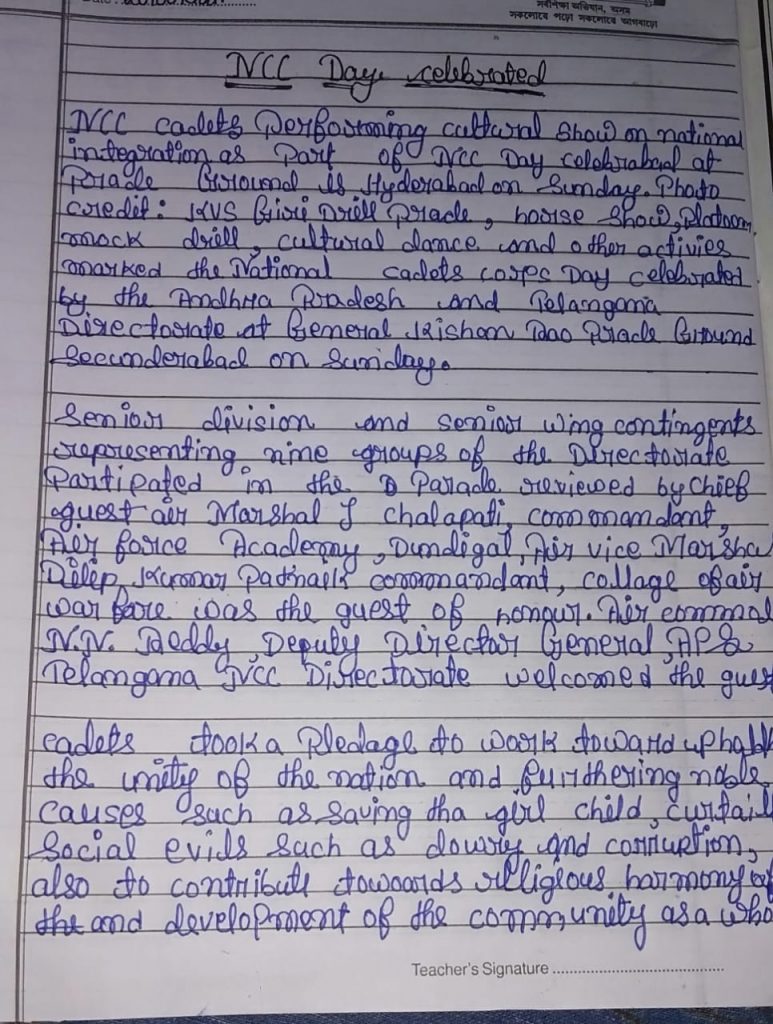 সকলোৱে পঢ়ো সকলোৱে আগবাঢ়ো
NCC Day celebrated
NCC cadets Performing cultural Show on national
integration as Part of NCC Day celebrated at
Prade Ground is Hyderabad on Sunday. Photo
credit: KVS Giri Drill Prade, hoise Show, Platoon,
mock drill, cultural dance and other activies
marked the National cadets corps Day celebrated
by the Andhra Pradesh and Telangana
Directorate at General Krishan Rao Prade Ground
Secunderabad on Sunday.
Senior division and senior wing contingents
representing nine groups of the Directorate
Partipated in the Parade reviewed by Chief
guest air Marshal J Chalapati, commandant,
Air force Academy, Dundigal, Air vice Marsha
Dilep Kumar Patnaik commandant, collage of air
war fare was the guest of honour. Air commal
N.N. Reddy, Deputy Director General, AP &
Telangana NCC Directorate welcomed the gues
cadets took a Pledage to work toward uphold
the unity of the nation and furthering noble
causes such as saving tha girl child, curtail
Social evids such as dowry and corruption,
also to contribute towoards religious harmony of
the and development of the community as a who
Teacher's Signature